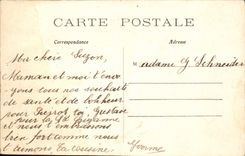 CARTE POSTALE
Correspondance
Adresse
Ma chère Suzon,
Maman et moi t'envo
yons tous nos souhaits
de santé et de bonheur
pour Pierrot toi, Gustave
pour la
et nous t'embrassons
bien fort comme nous
t'aimons Ta cousine
Yvonne
Madame G Schneider